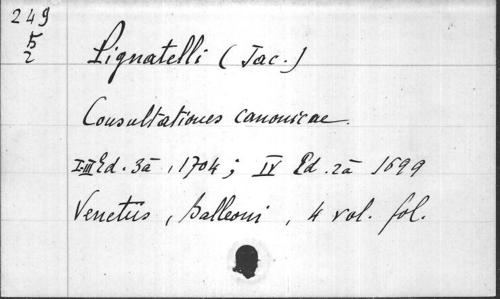 249
5
2
Pignatelli (Jac.)
Consultationes canonicae.
I-III Ed. 3ā, 1704; IV Ed. 2ā 1699
Venetiis, Balleoni, 4 vol. fol.